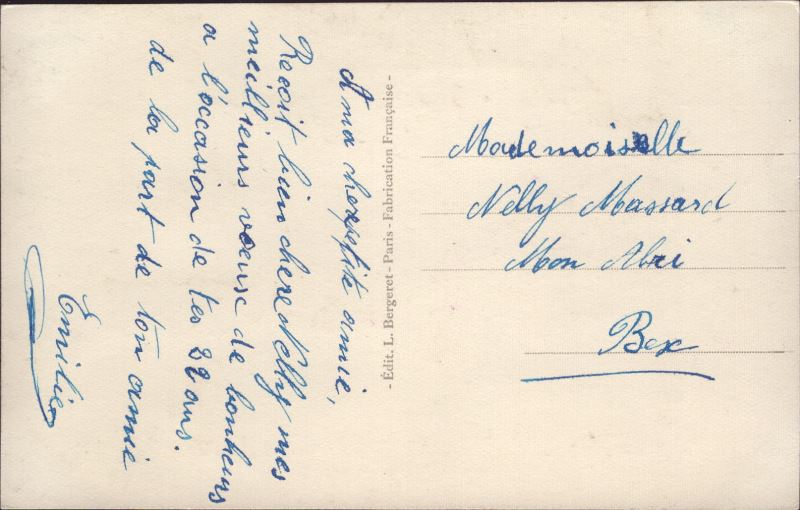 A ma cherpetite amie,
Reçoit bien chere Nelly mes
meillieurs voeuse de bonheurs
a l'occasion de tes 22 ans.
de la part de ton amie
Emilie
- Édit. L. Bergeret - Paris - Fabrication Française -
Mademoiselle
Nelly Massard
Mon Abri
Bex